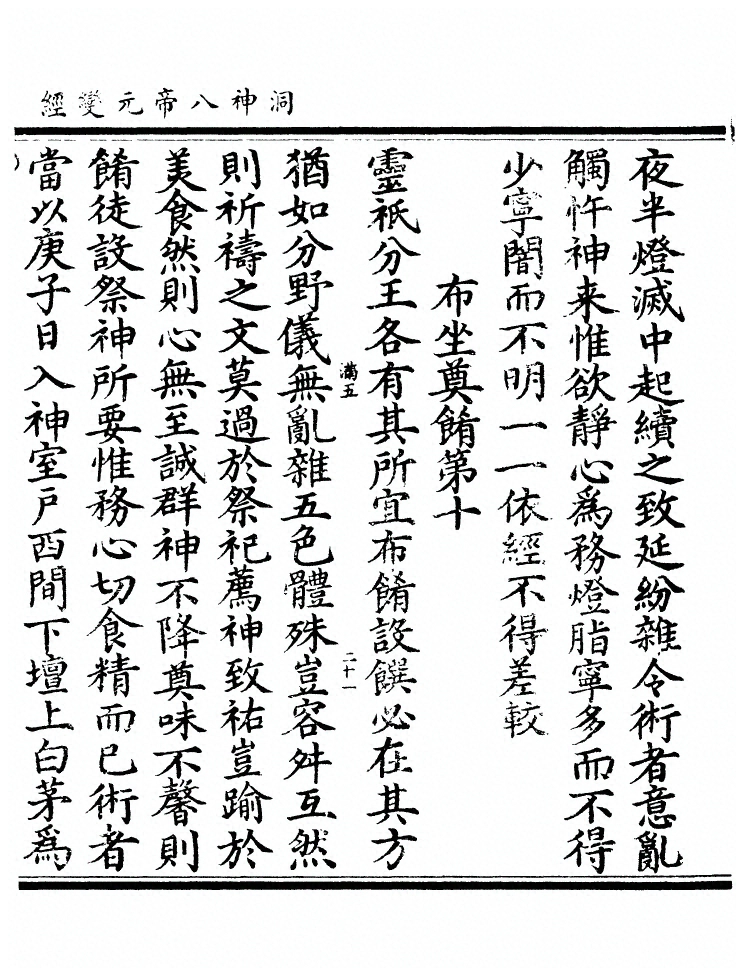 洞神八帝元變經
夜半燈滅中起續之致延紛雜令術者意亂
觸忤神来惟欲靜心為務燈脂寧多而不得
少寧闇而不明一一依經不得差較
布坐奠餚第十
靈祇分王各有其所宜布餚設饌必在其方
滿五
二十一
猶如分野儀無亂雜五色體殊豈容舛互然
則祈禱之文莫過於祭祀薦神致祐豈踰於
美食然則心無至誠群神不降奠味不馨則
餚徒設祭神所要惟務心切食精而已術者
當以庚子日入神室戶西間下壇上白茅為